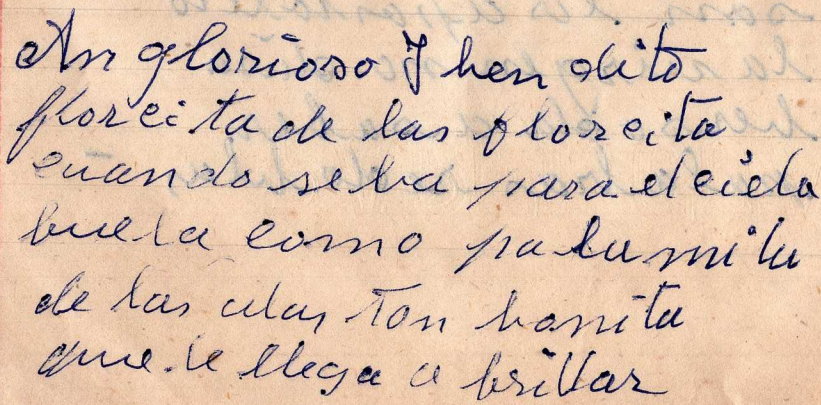 An glorioso J ben dito
florcita de las florcita
cuando se ba para el cielo
buela como palumita
de las alas tan bonita
que le llega a brillar